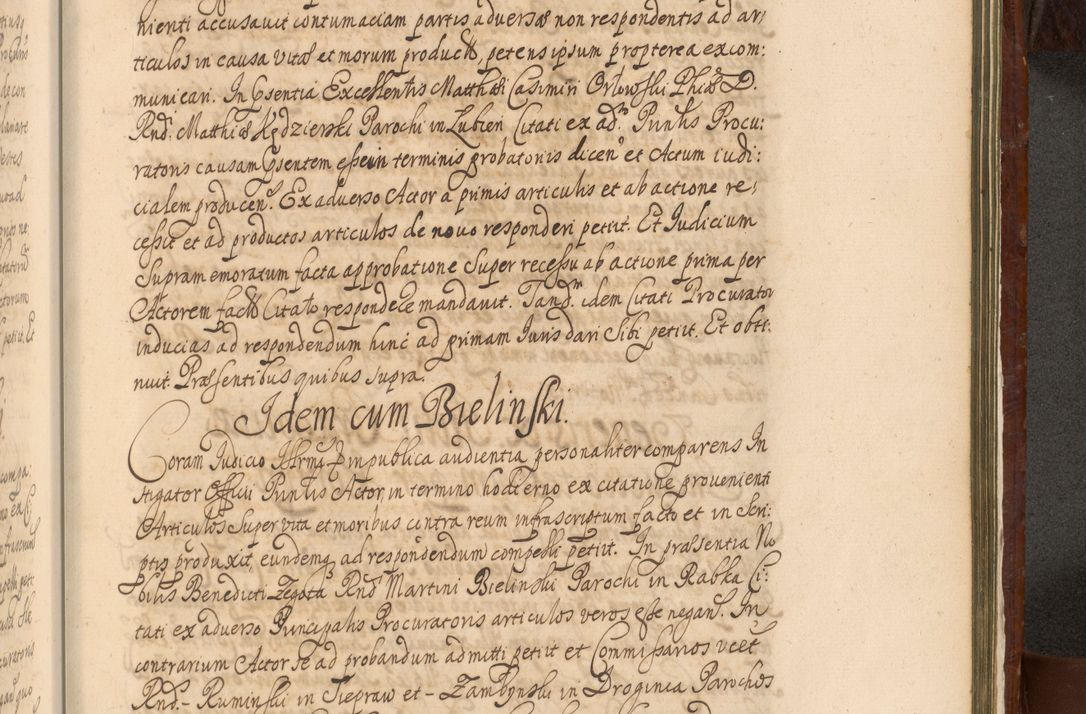 nienti accusavit contumaciam partis adversæ non respondentis ad ar
ticulos in causa vitæ et morum productos, petens ipsum propterea excom:
municari. In Psentia Excellentis Matthæi Casimiri Orłowski Phiæ D.
Rnd. Matthiæ Kędzierski Parochi in Łubien Citati ex adm. Puntis Procu:
ratoris causam Psentem esse in terminis probatoriis dicen. et Actum iudi:
cialem producen. Ex adverso Actor a primis articulis et ab actione re,
cessit et ad productos articulos de novo responderi petiit. Et Iudicium
Supramemoratum facta approbatione Super recessu ab actione prima per
Actorem facto Citato respondere mandavit. Tandm. idem Citati Procurator
inducias ad respondendum hinc ad primam Iuris dari Sibi petiit. Et obti:
nuit Præsentibus quibus supra.
Idem cum Bielinski.
Coram Iudicio in publica audientia personaliter comparens In
stigator Officii Puntis Actor, in termino hodierno ex citatione provenienti
Articulos Super vita et moribus contra reum infrascriptum facto et in Scri:
ptis produxit eundemq ad respondendum compelli petiit. In præsentia No
bilis Benedicti Zegota Rnd Martini Bielinski Parochi in Rabka Ci:
tati ex adverso Principalis Procuratoris articulos veros esse negan. In
contrarium Actor se ad probandum admitti petiit et Commissarios vcet
Rnd. - Ruminski in Siepraw et - Zambynski in Droginia Parochos